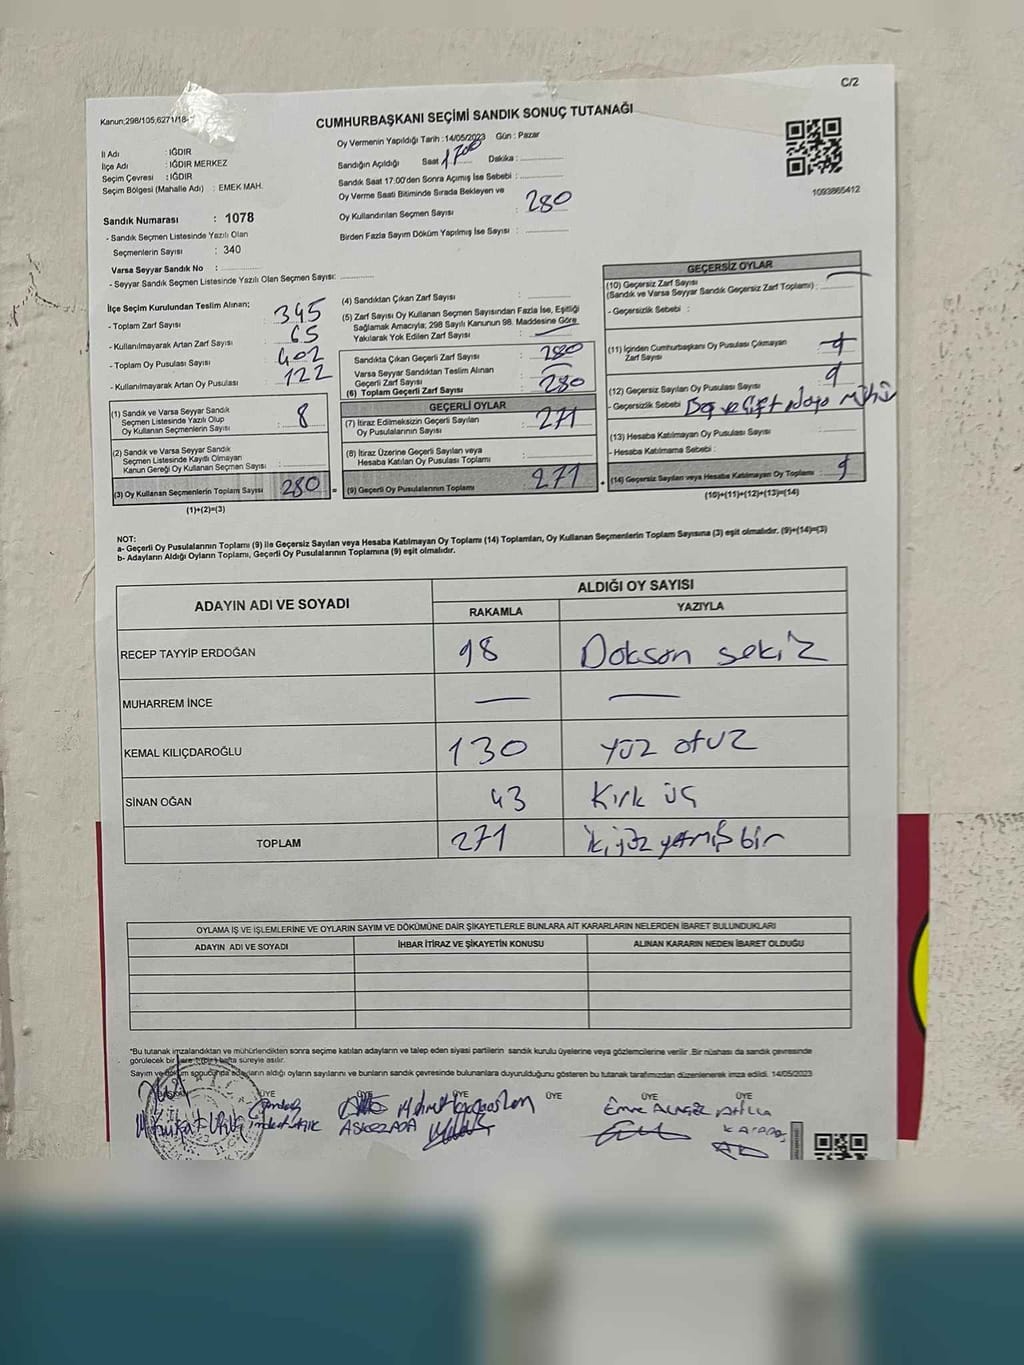 C/2
Kanun;298/105;6271/18-
CUMHURBAŞKANI SEÇİMİ SANDIK SONUÇ TUTANAĞI
Oy Vermenin Yapıldığı Tarih :14/05/2023 Gün : Pazar
İl Adı : IĞDIR
İlçe Adı : IĞDIR MERKEZ
Seçim Çevresi : IĞDIR
Seçim Bölgesi (Mahalle Adı) : EMEK MAH.
Sandığın Açıldığı Saat 1700 Dakika :
Sandık Saat 17:00'den Sonra Açımış İse Sebebi :
Oy Verme Saati Bitiminde Sırada Bekleyen ve
Oy Kullandırılan Seçmen Sayısı : 280
Birden Fazla Sayım Döküm Yapılmış İse Sayısı :
1093865412
Sandık Numarası : 1078
- Sandık Seçmen Listesinde Yazılı Olan
Seçmenlerin Sayısı : 340
Varsa Seyyar Sandık No :
- Seyyar Sandık Seçmen Listesinde Yazılı Olan Seçmen Sayısı:
İlçe Seçim Kurulundan Teslim Alınan;
- Toplam Zarf Sayısı : 345
- Kullanılmayarak Artan Zarf Sayısı : 65
- Toplam Oy Pusulası Sayısı : 402
- Kullanılmayarak Artan Oy Pusulası : 122
(1) Sandık ve Varsa Seyyar Sandık
Seçmen Listesinde Yazılı Olup
Oy Kullanan Seçmenlerin Sayısı : 8
(2) Sandık ve Varsa Seyyar Sandık
Seçmen Listesinde Kayıtlı Olmayan
Kanun Gereği Oy Kullanan Seçmen Sayısı :
(3) Oy Kullanan Seçmenlerin Toplam Sayısı 280
(1)+(2)=(3)
(4) Sandıktan Çıkan Zarf Sayısı :
(5) Zarf Sayısı Oy Kullanan Seçmen Sayısından Fazla İse, Eşitliği
Sağlamak Amacıyla; 298 Sayılı Kanunun 98. Maddesine Göre
Yakılarak Yok Edilen Zarf Sayısı :
Sandıkta Çıkan Geçerli Zarf Sayısı : 280
Varsa Seyyar Sandıktan Teslim Alınan
Geçerli Zarf Sayısı :
(6) Toplam Geçerli Zarf Sayısı : 280
GEÇERLİ OYLAR
(7) İtiraz Edilmeksizin Geçerli Sayılan
Oy Pusulasının Sayısı : 271
(8) İtiraz Üzerine Geçerli Sayılan veya
Hesaba Katılan Oy Pusulası Toplamı :
= (9) Geçerli Oy Pusulalarının Toplamı 271
GEÇERSİZ OYLAR
(10) Geçersiz Zarf Sayısı
(Sandık ve Varsa Seyyar Sandık Geçersiz Zarf Toplamı) :
- Geçersizlik Sebebi :
(11) İçinden Cumhurbaşkanı Oy Pusulası Çıkmayan
Zarf Sayısı :
(12) Geçersiz Sayılan Oy Pusulası Sayısı : 9
- Geçersizlik Sebebi
(13) Hesaba Katılmayan Oy Pusulası Sayısı :
- Hesaba Katılmama Sebebi :
+ (14) Geçersiz Sayılan veya Hesaba Katılmayan Oy Toplamı : 9
(10)+(11)+(12)+(13)=(14)
NOT:
a- Geçerli Oy Pusulalarının Toplamı (9) ile Geçersiz Sayılan veya Hesaba Katılmayan Oy Toplamı (14) Toplamları, Oy Kullanan Seçmenlerin Toplam Sayısına (3) eşit olmalıdır. (9)+(14)=(3)
b- Adayların Aldığı Oyların Toplamı, Geçerli Oy Pusulalarının Toplamına (9) eşit olmalıdır.
ADAYIN ADI VE SOYADI
ALDIĞI OY SAYISI
RAKAMLA YAZIYLA
RECEP TAYYİP ERDOĞAN 98 Dokson sekiz
MUHARREM İNCE — —
KEMAL KILIÇDAROĞLU 130 yüz otuz
SİNAN OĞAN 43 Kırk üç
TOPLAM 271 ikiyüz yetmiş bir
OYLAMA İŞ VE İŞLEMLERİNE VE OYLARIN SAYIM VE DÖKÜMÜNE DAİR ŞİKAYETLERLE BUNLARA AİT KARARLARIN NELERDEN İBARET BULUNDUKLARI
ADAYIN ADI VE SOYADI İHBAR İTİRAZ VE ŞİKAYETİN KONUSU ALINAN KARARIN NEDEN İBARET OLDUĞU
"Bu tutanak imzalandıktan ve mühürlendikten sonra seçime katılan adayların ve talep eden siyasi partilerin sandık kurulu üyelerine veya gözlemcilerine verilir .Bir nüshası da sandık çevresinde
görülecek bir yere 1 (bir) hafta süreyle asılır.
Sayım ve döküm sonucunda adayların aldığı oyların sayılarını ve bunların sandık çevresinde bulunanlara duyurulduğunu gösteren bu tutanak tarafımızdan düzenlenerek imza edildi. 14/05/2023
ÜYE ÜYE ÜYE ÜYE ÜYE